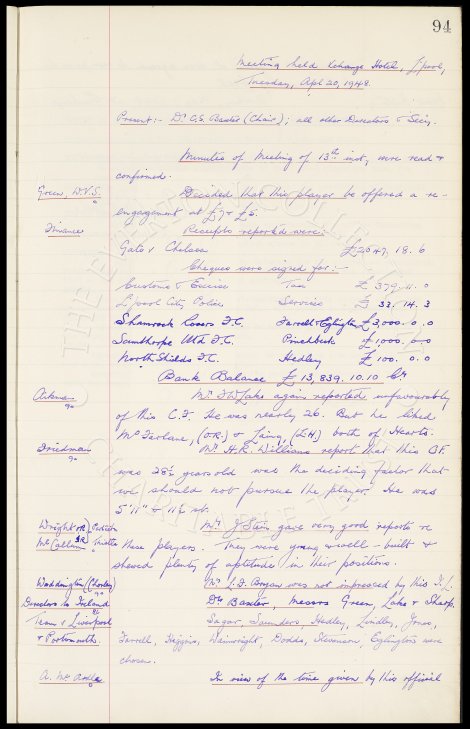 94
Meeting held Xchange Hotel, L'pool,
Tuesday, Apl 20, 1948.
Present:- Dr C.S. Baxter (Chair); all other Directors & Secy.
Minutes of Meeting of 13th inst, were read &
confirmed.
Green, D.V.S. Decided that this player be offered a re-
engagement at £7 & £5.
Finance Receipts reported were:-
Gate v Chelsea £2049. 18. 6
Cheques were signed for:-
Customs & Excise Tax £ 379. 11. 0
L'pool City Police Services £ 33. 14. 3
Shamrock Rovers F.C. Farrell & Eglington £3,000. 0. 0
Scunthorpe Utd F.C. Pinchbeck £1,000. 0. 0
North Shields F.C. Hedley £ 100. 0. 0
Bank Balance £13,839. 10. 10 Cr
Mr Lake again reported unfavourably
of this C.F. He was nearly 26. But he liked
McFarlane, (O.R.) & Laing, (I.H) both of Hearts.
Mr. H.R. Williams report that this CF.
was 28½ years old was the deciding factor that
we should not pursue the player. He was
5'11" & 11½ st.
Wright O.R. Partick Mr. J Sein gave very good reports re
McCallum I.R. Thistle these players. They were young & well-built &
shewed plenty of aptitude in their positions.
Waddington (Chorley) Mr was not impressed by this
Directors to Ireland Dr Baxter, Messrs Green, Lake & Sharp.
Team v Liverpool Sagar, Saunders, Hedley, Lindley, Jones,
& Portsmouth. Farrell, Higgins, Wainwright, Dodds, Stevenson, Eglington were
chosen.
A. In view of the time given by this official